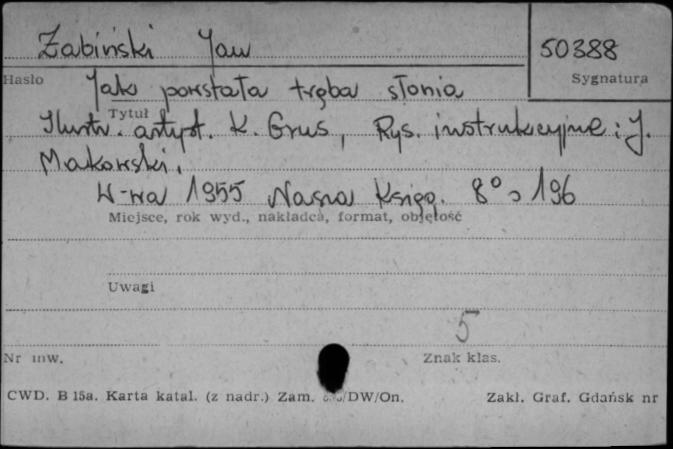 Żabiński Jan
50388
Hasło
Sygnatura
Jak powstała trąba słonia
Tytuł
Ilustr. artyst. K. Grus, Rys. instrukcyjne: J.
Makowski,
W-wa 1955 Nasza Księg. 8° s 196
Miejsce, rok wyd., nakładca, format, objętość
Uwagi
5
Nr inw.
Znak klas.
CWD. B 15a. Karta katal. (z nadr.) Zam. /DW/On.
Zakł. Graf. Gdańsk nr